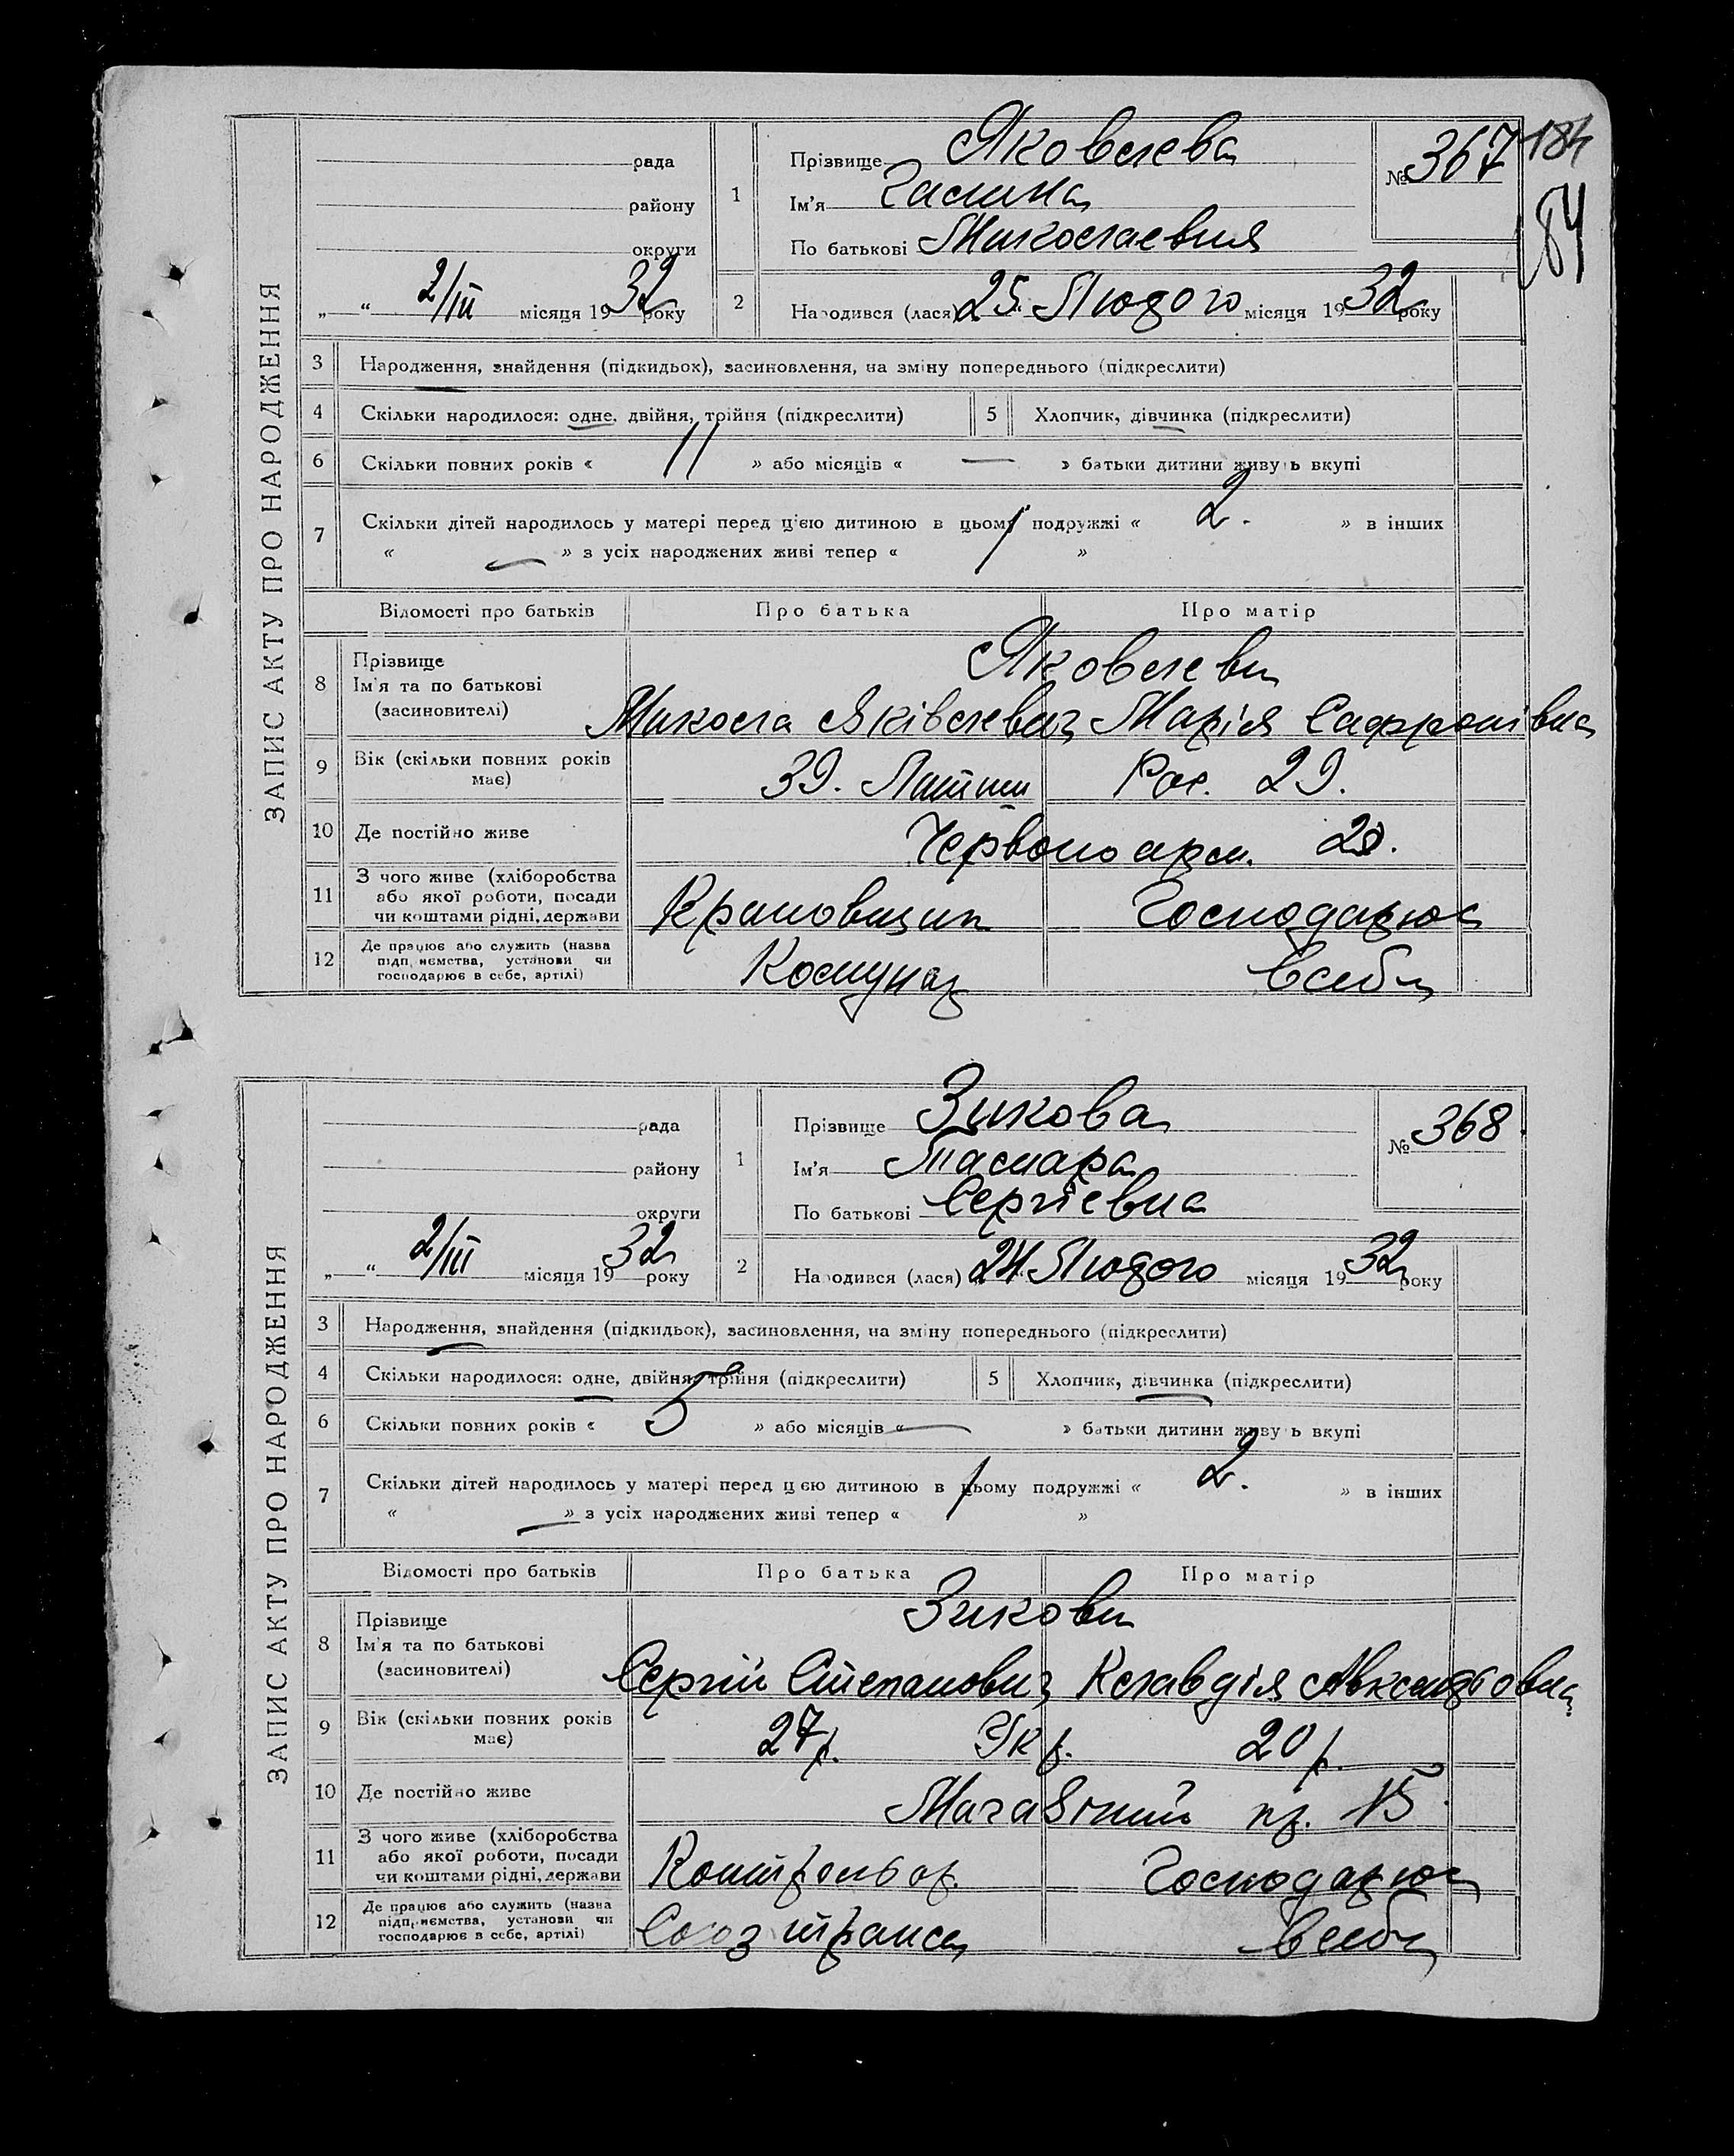 184
84
ЗАПИС АКТУ ПРО НАРОДЖЕННЯ
рада
району
округи
„ “ 2/III місяця 1932 року
1
Прізвище Яковлева
Ім'я Галина
По батькові Миколаевна
№ 367
2 Народився (лася) 25 Лютого місяця 1932 року
3 Народження, знайдення (підкидьок), засиновлення, на зміну попереднього (підкреслити)
4 Скільки народилося: одне, двійня, трійня (підкреслити) 5 Хлопчик, дівчинка (підкреслити)
6 Скільки повних років « 11 » або місяців « — » батьки дитини живуть вкупі
7 Скільки дітей народилось у матері перед цією дитиною в цьому подружжі « 2. » в інших
« — » з усіх народжених живі тепер « 1 »
Відомості про батьків Про батька Про матір
8 Прізвище
Ім'я та по батькові
(засиновителі)
Яковлеви
Микола Яківлевич Марія Сафронівна
9 Вік (скільки повних років має) 39. Латиш Рос. 29.
10 Де постійно живе Червоноарм. 20.
11 З чого живе (хліборобства або якої роботи, посади чи коштами рідні, держави Крановщик Господарює
12 Де працює або служить (назва підприємства, установи чи господарює в себе, артілі) Комунар В себе
ЗАПИС АКТУ ПРО НАРОДЖЕННЯ
рада
району
округи
„ “ 2/III місяця 1932 року
1
Прізвище Зикова
Ім'я Тамара
По батькові Сергіевна
№ 368.
2 Народився (лася) 24 Лютого місяця 1932 року
3 Народження, знайдення (підкидьок), засиновлення, на зміну попереднього (підкреслити)
4 Скільки народилося: одне, двійня, трійня (підкреслити) 5 Хлопчик, дівчинка (підкреслити)
6 Скільки повних років « 5 » або місяців « — » батьки дитини живуть вкупі
7 Скільки дітей народилось у матері перед цією дитиною в цьому подружжі « 2. » в інших
« — » з усіх народжених живі тепер « 1 »
Відомості про батьків Про батька Про матір
8 Прізвище
Ім'я та по батькові
(засиновителі)
Зикови
Сергій Степанович Клавдія
9 Вік (скільки повних років має) 27 р. Укр. 20 р.
10 Де постійно живе пр. 15
11 З чого живе (хліборобства або якої роботи, посади чи коштами рідні, держави Контрольор. Господарює
12 Де працює або служить (назва підприємства, установи чи господарює в себе, артілі) Союзтранс В себе